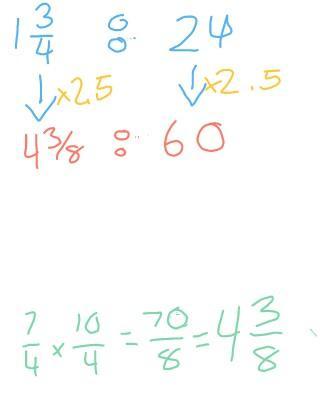 1 3/4 : 24
↓ ×2.5 ↓ ×2.5
4 3/8 : 60
7/4 × 10/4 = 70/8 = 4 3/8